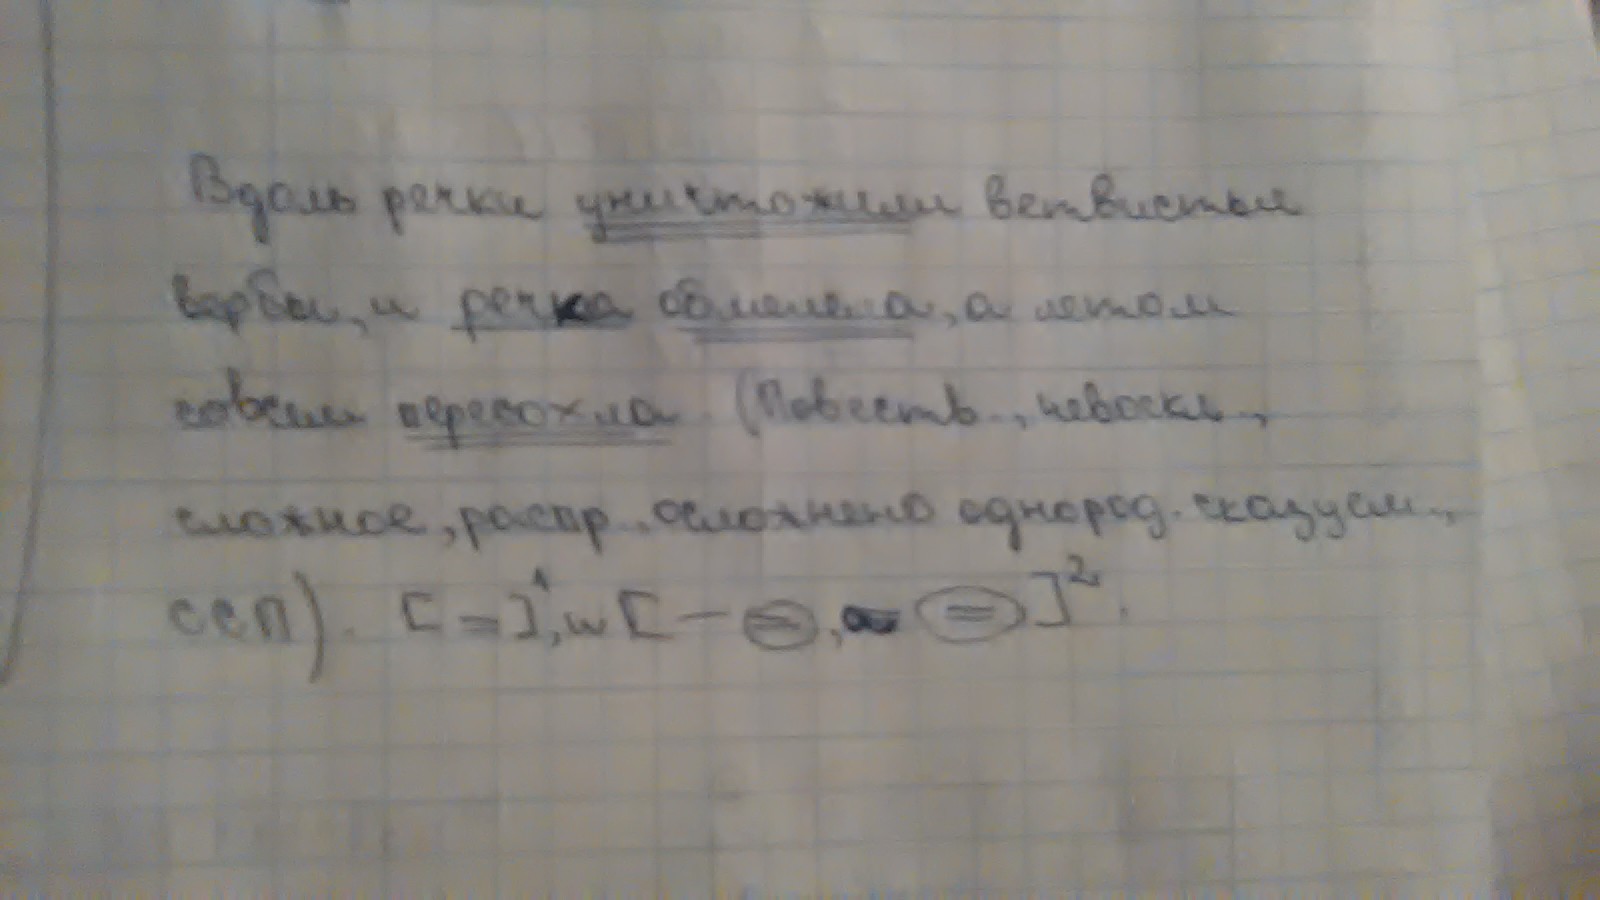 Вдоль речки уничтожили ветвистые
вербы, и речка обмелела, а летом
совсем пересохла. (Повеств., невоскл.,
сложное, распр., осложнено однород. сказуем.,
ССП). [=]¹, и [– =, а =]².